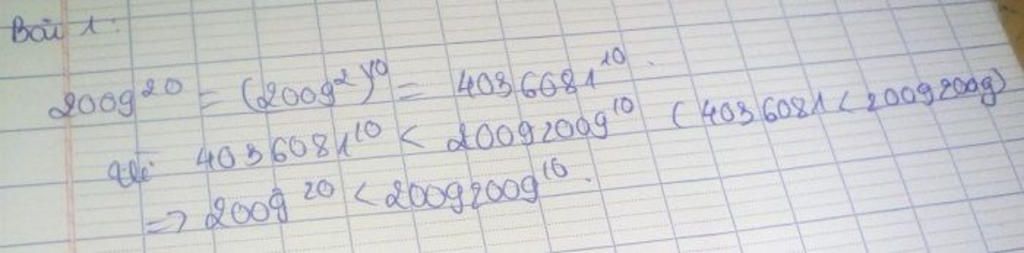 Bài 1:
2009^20 = (2009^2)^10 = 4036081^10.
Vì 4036081^10 < 20092009^10 (4036081 < 20092009)
=> 2009^20 < 20092009^10.